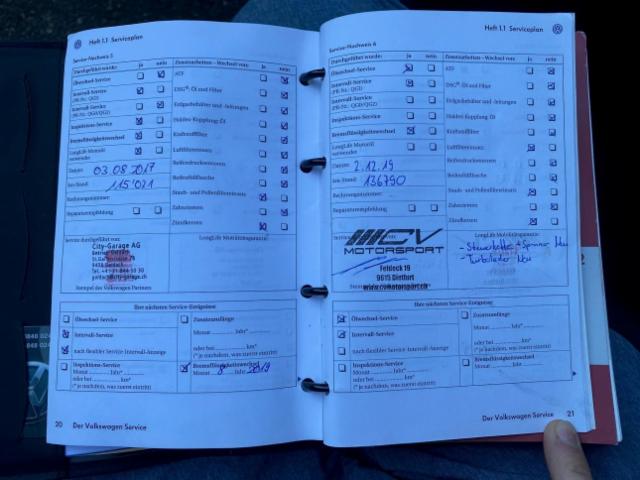 Heft 1.1 Serviceplan
Service-Nachweis 5
Durchgeführt wurde: ja nein
Ölwechsel-Service
Intervall-Service
(PR-Nr.: QG1)
Intervall-Service
(PR-Nr.: QG0/QG2)
Inspektions-Service
Bremsflüssigkeitswechsel
LongLife Motoröl
verwendet
Datum: 03.08.2017
km-Stand: 115'021
Rechnungsnummer:
Reparaturempfehlung
Zusatzarbeiten - Wechsel von: ja nein
ATF
DSG® Öl und Filter
Erdgasbehälter und -leitungen
Haldex Kupplung Öl
Kraftstofffilter
Luftfiltereinsatz
Reifendruckseonsoren
Reifenfüllflasche
Staub- und Pollenfiltereinsatz
Zahnriemen
Zündkerzen
Service durchgeführt von:
LongLife Mobilitätsgarantie:
City-Garage AG
Stempel des Volkswagen Partners
Ihre nächsten Service-Ereignisse
Ölwechsel-Service
Intervall-Service
nach flexibler Service-Intervall-Anzeige
Inspektions-Service
Monat Jahr*
oder bei km*
(* je nachdem, was zuerst eintritt)
Zusatzumfänge
Monat Jahr*
oder bei km*
(* je nachdem, was zuerst eintritt)
Bremsflüssigkeitswechsel
Monat 8 Jahr 2019
20 Der Volkswagen Service
Heft 1.1 Serviceplan
Service-Nachweis 6
Durchgeführt wurde: ja nein
Ölwechsel-Service
Intervall-Service
(PR-Nr.: QG1)
Intervall-Service
(PR-Nr.: QG0/QG2)
Inspektions-Service
Bremsflüssigkeitswechsel
LongLife Motoröl
verwendet
Datum: 2.12.19
km-Stand: 136790
Rechnungsnummer:
Reparaturempfehlung
Zusatzarbeiten - Wechsel von: ja nein
ATF
DSG® Öl und Filter
Erdgasbehälter und -leitungen
Haldex Kupplung Öl
Kraftstofffilter
Luftfiltereinsatz
Reifendrucksensoren
Reifenfüllflasche
Staub- und Pollenfiltereinsatz
Zahnriemen
Zündkerzen
LongLife Mobilitätsgarantie:
CV
MOTORSPORT
Feldock 19
9615 Dietfurt
www.cvmotorsport.ch
- Steuerkette + Spanner Neu
- Turbolader Neu
Ihre nächsten Service-Ereignisse
Ölwechsel-Service
Intervall-Service
nach flexibler Service-Intervall-Anzeige
Inspektions-Service
Monat Jahr*
oder bei km*
(* je nachdem, was zuerst eintritt)
Zusatzumfänge
Monat Jahr*
oder bei km*
(* je nachdem, was zuerst eintritt)
Bremsflüssigkeitswechsel
Monat Jahr
Der Volkswagen Service 21